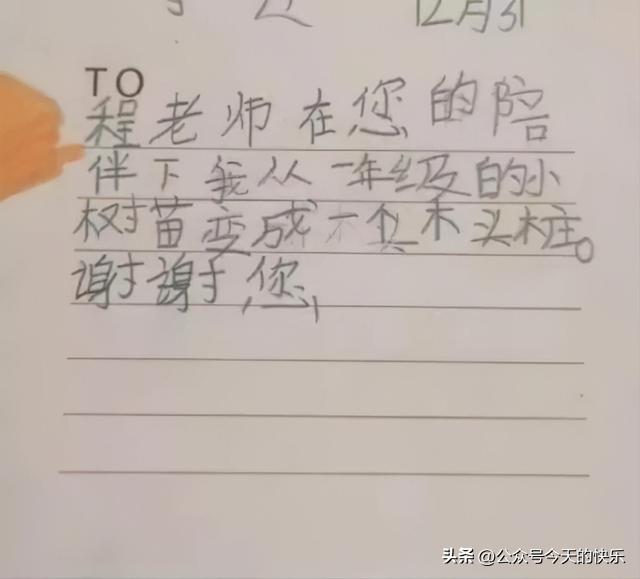 12月31
TO
程老师在您的陪
伴下我从一年级的小
树苗变成一个木头桩。
谢谢您,
头条 @公众号今天的快乐